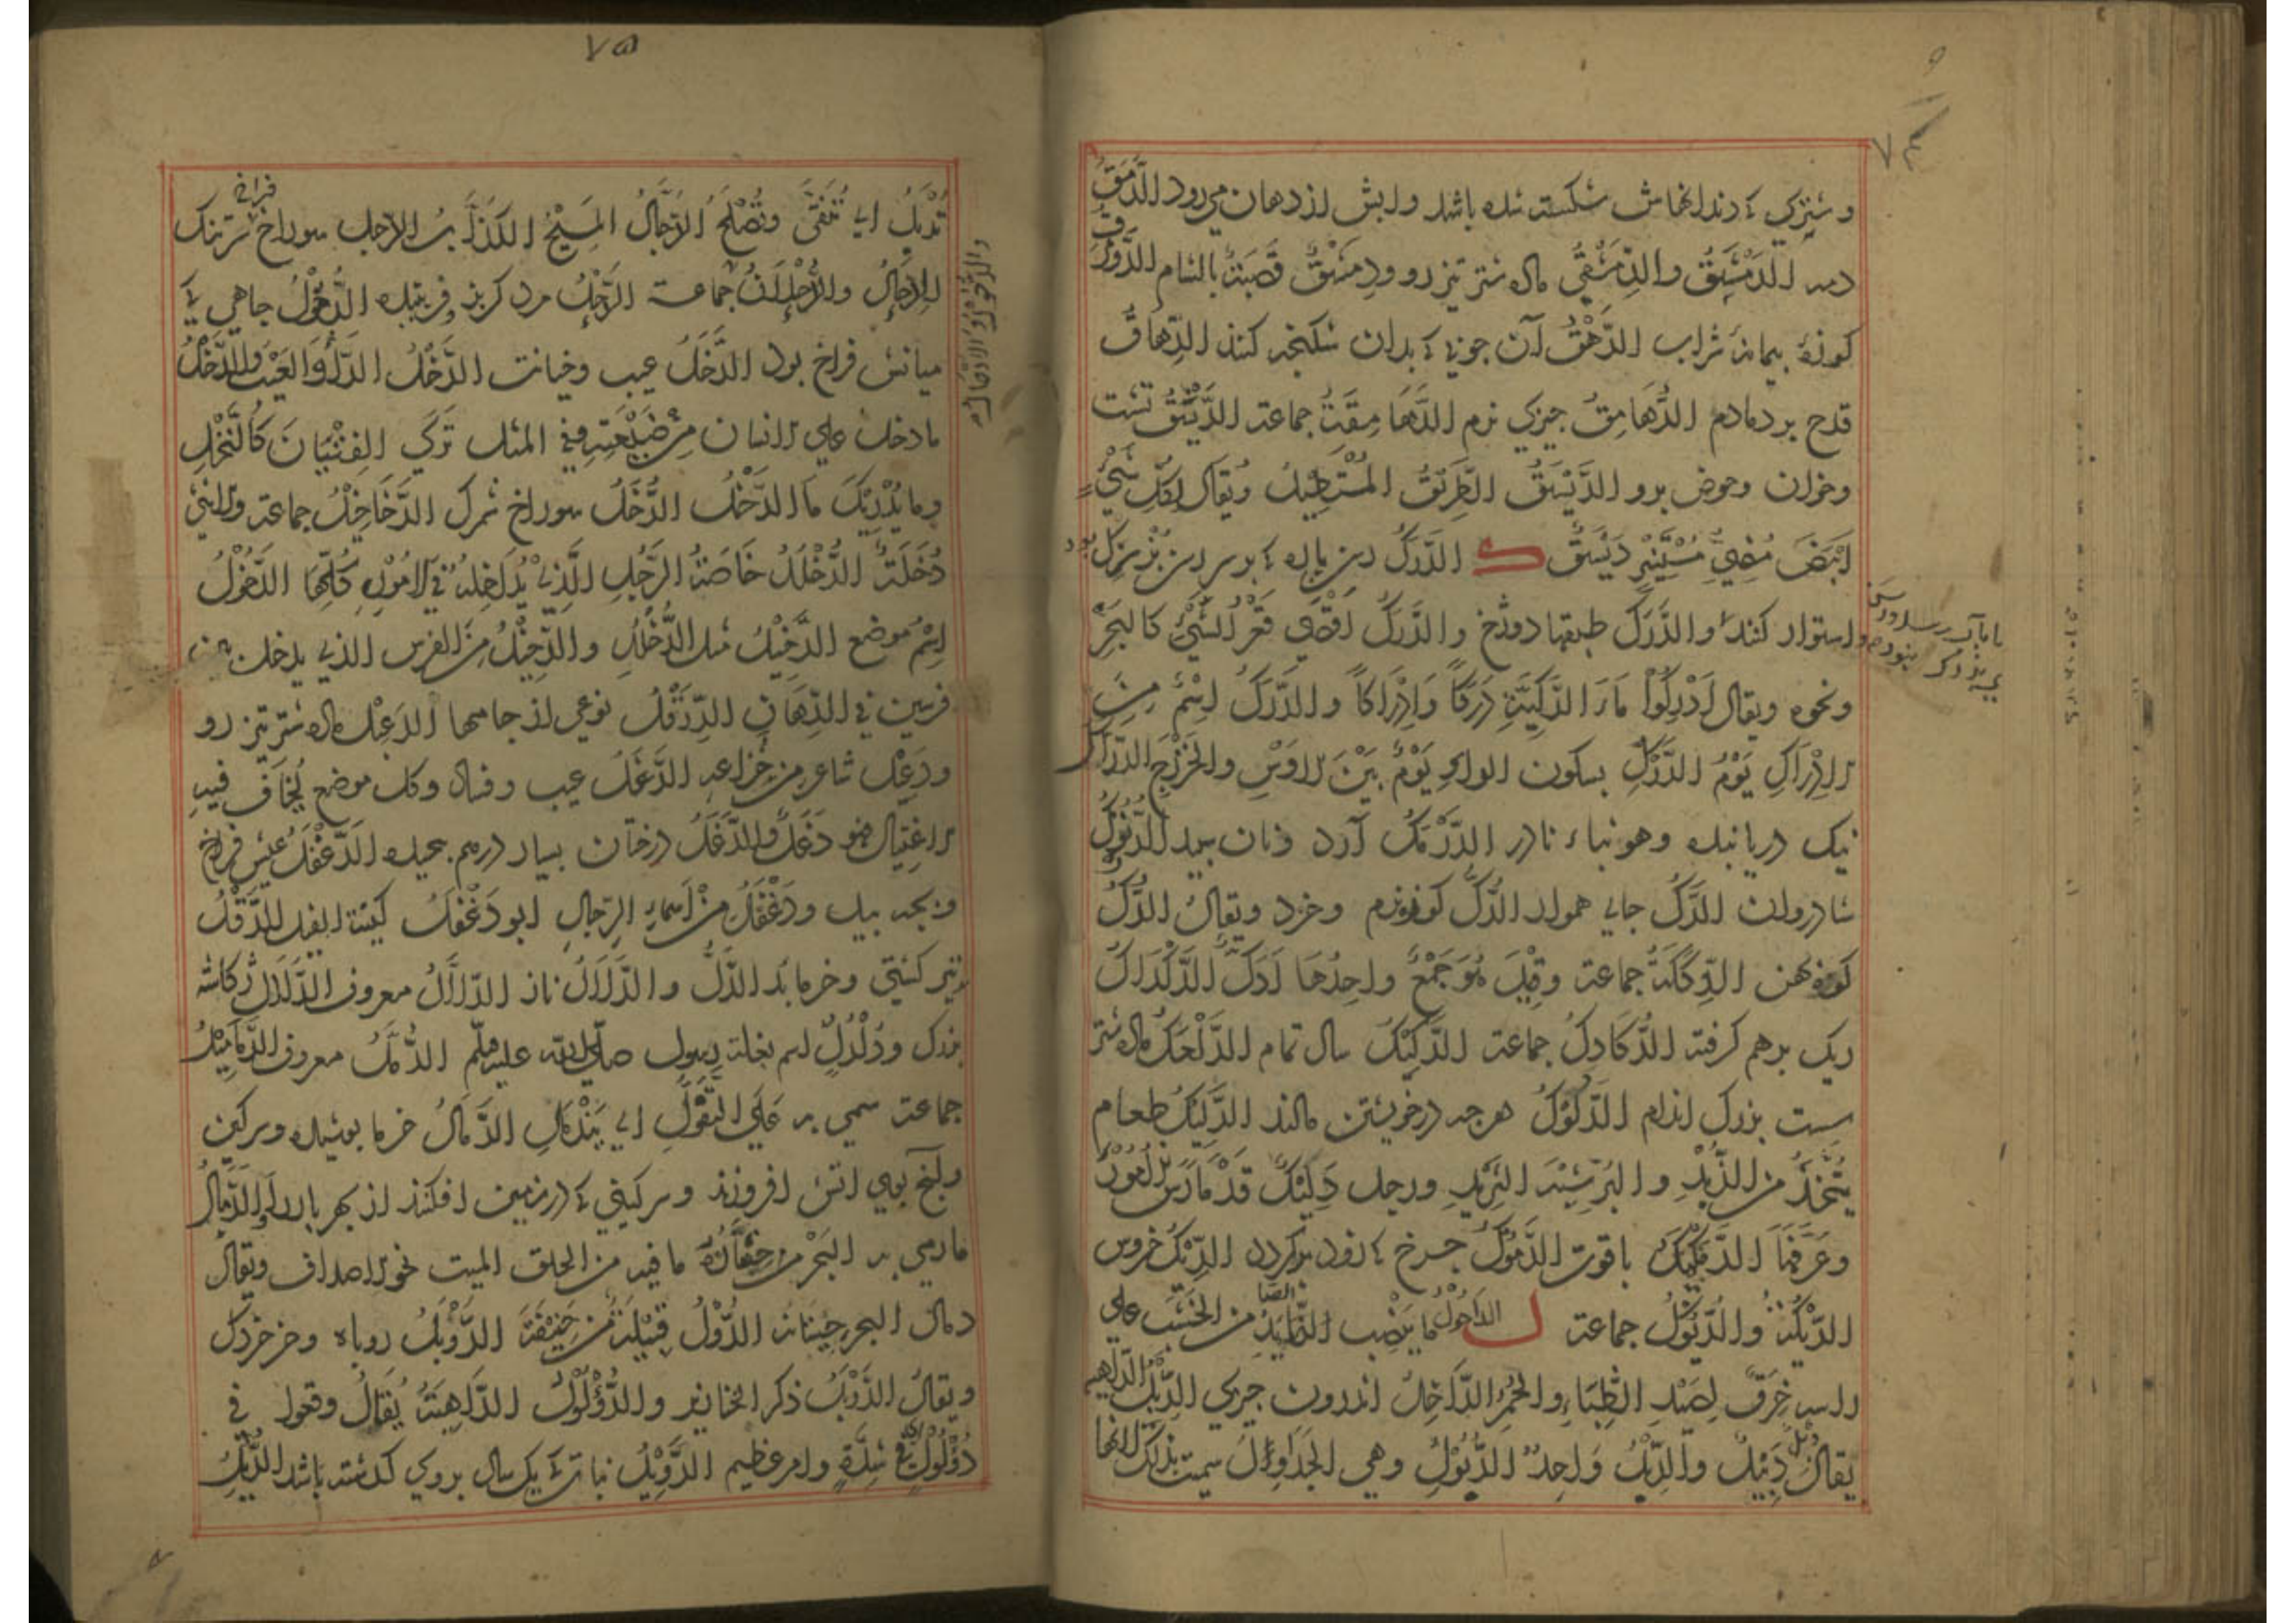 ۷۴
وشتري كه دندانهاش شكسته شده باشد ولبش از دهان مي رود الدَّمَقُ
دمه الدَمْشَقُ والدِّمَشْقِيُّ ماده شتر تيز رو ودِمَشْقُ قَصَبَةُ بالشام الدَّوْرَقُ
كوزهٔ پيمانهٔ شراب الدَّهْقُ آن چوبي كه بدان شكنجه كنند الدِّهَاقُ
قدح پر دمادم الدُّهَامِقُ چيزي نرم الدَّهَامِقَةُ جماعة الدَّيْسَقُ تشت
وخوان وحوض پرو الدَّيْسَقُ الطَّرِيْقُ المُسْتَطِيْلُ ويُقَالُ لِكُلِّ شَيْءٍ
اَبْيَضَ مُضِيءٍ مُسْتَنِيْرٍ دَيْسَقُ ك الدَّرَكُ
واستوار كنند والدَّرَكُ طبقها دوزخ والدَّرَكُ اَقْصَى قَعْرِ الشَّيْءِ كالبَحْرِ
ونحوه ويقال اَدْرِكُوْا مَاءَ الرَّكِيَّةِ دَرَكًا وَاِدْرَاكًا والدَّرَكُ اِسْمٌ مِنَ
الاِدْرَاكِ يَوْمُ الدَّرْكِ بسكون الراء يَوْمٌ بَيْنَ الاَوْسِ والخَزْرَجِ الدَّرَّاكُ
نيك دريابنده وهو بناء نادر الدَّرْمَكُ آرد ونان سپيد الدُّرْنُوْكُ
شادروان الدَّكُّ جاي هموار الدُّكُّ كوه نرم وخرد ويقال الدُّكُّ
كوه پهن الدِّكَكَةُ جماعة وقِيْلَ هُوَ جَمْعٌ واحِدُهَا اَدَكُّ الدَّكْدَاكُ
ريگ برهم گرفته الدَّكَادِكُ جماعة الدَّكِيْكُ سال تمام الدَّلْعَكُ ماده شتر
سست بزرگ اندام الدَّلُوْكُ هرچه در خويشتن مالند الدَّلِيْكُ طعام
يُتَّخَذُ من الزُّبْدِ والبُرِّ شِبْهَ الثَّرِيْدِ ورجل دَلِيْكٌ قَدْ مَارَسَ الاُمُوْرَ
وعَرَفَهَا الدَّمَكْمَكُ با قوت الدَّمُوْكُ چرخ كه زود بر گردد الدِّيْكُ خروس
الدِّيْكَةُ والدُّيُوْكُ جماعة ل الدَاحُوْلُ مَا يَنْصِب الصَّائِدُ من الخَشَبِ على
راسه خِرَقٌ لِصَيْدِ الظِّبَاءِ والحُمُرِ الدَّاخِلُ اندرون چيزي الدِّبْلُ الدَّاهِيَة
يقال دِبْلٌ دَبِيْلٌ والدَّبْلُ وَاحِدُ الدُّبُوْلِ وهي الجَدَاوِلُ سميت بذلك لانها
۷۵
تُدْبَلُ اي تُنَقَّى وتُصْلَحُ الدَّجَّالُ المَسِيْحُ الكَذَّابُ الدحل سوراخ سر تنگ
الاِدْحَالُ والدُّحْلَانُ جماعة الدَّحِلُ مرد گربز وفريبنده الدَّحُوْلُ چاهي كه
ميانش فراخ بود الدَّخَلُ عيب وخيانت الدَّخْلُ الدَّاءُ والعَيْبُ والدَّخْلُ
ما دخل على الانسان مِنْ ضَيْعَتِهِ وفي المثل تَرَى الفِتْيَانَ كَالنَّخْلِ
ومَا يُدْرِيْكَ مَا الدَّخْلُ الدُّخَّلُ سوراخ شمرك الدَّخَاخِيْلُ جماعة والانثى
دُخَّلَةُ الدُّخْلَلُ خَاصَّةُ الرَّجُلِ الَّذِيْ يُدَاخِلُهُ فِي الاُمُوْرِ كُلِّهَا الدَّخُوْلُ
اِسْمُ موضع الدَّخِيْلُ مثل الدُّخْلُلِ والدَّخِيْلُ مِنَ الفرس الذي يدخل بين
فرسين في الرِّهَانِ الدِّرَقْلُ نوعي از جامها الدِعْبِلُ ماده شتر تيز رو
ودِعْبِلُ شاعر من خُزَاعة الدَّغَلُ عيب وفساد وكل موضع يُخَافُ فيه
الاغْتِيَالُ فهو دَغَلٌ والدَّغَلُ درختان بسيار درهم پيچيده الدَّغْفَلُ عيش فراخ
وبچه پيل ودَغْفَلُ مِنْ اَسْمَاءِ الرِّجَالِ ابو دَغْفَلُ كنية الفيل الدَّقَلُ
تير كشتي وخرما بد الدَّلُّ والدَّلَالُ ناز الدَّلَّالُ معروف الدُّلْدُلُ ژكاشه
بزرگ ودُلْدُلٌ اسم بغلة رسول صلى الله عليه وسلم الدُّمَّلُ معروف الدَّمَامِيْلُ
جماعة سمي به عَلَى التَّفَوُّلِ اي يَنْدَمِلُ الدَّمَالُ خرما پوسيده وسرگين
وآنچ بوي اتش افروزند وسرگيني كه در زمين افگنند از بهر بار آور والدَّمَالُ
ما رمي به البَحْرُ مِنْ خُثَارَةٍ ما فيه من الخلق الميت نحو الاصداف ويقال
دمال البحر حِيْتَانُه الدُّوْلُ قَبِيْلَةٌ مِنْ حَنِيْفَةَ الدَّوْبَلُ روباه وخر خرد
ويقال الدَّوْبَلُ ذكر الخنازير والدُّؤْلُوْلُ الدَّاهِيَةُ يُقَالُ وقعوا في
دُؤْلُوْلٍ اي في شِدَّةٍ وامر عظيم الدَّوِيْلُ نبات كه يك سال بروي گذشته باشد الدَّئِلُ